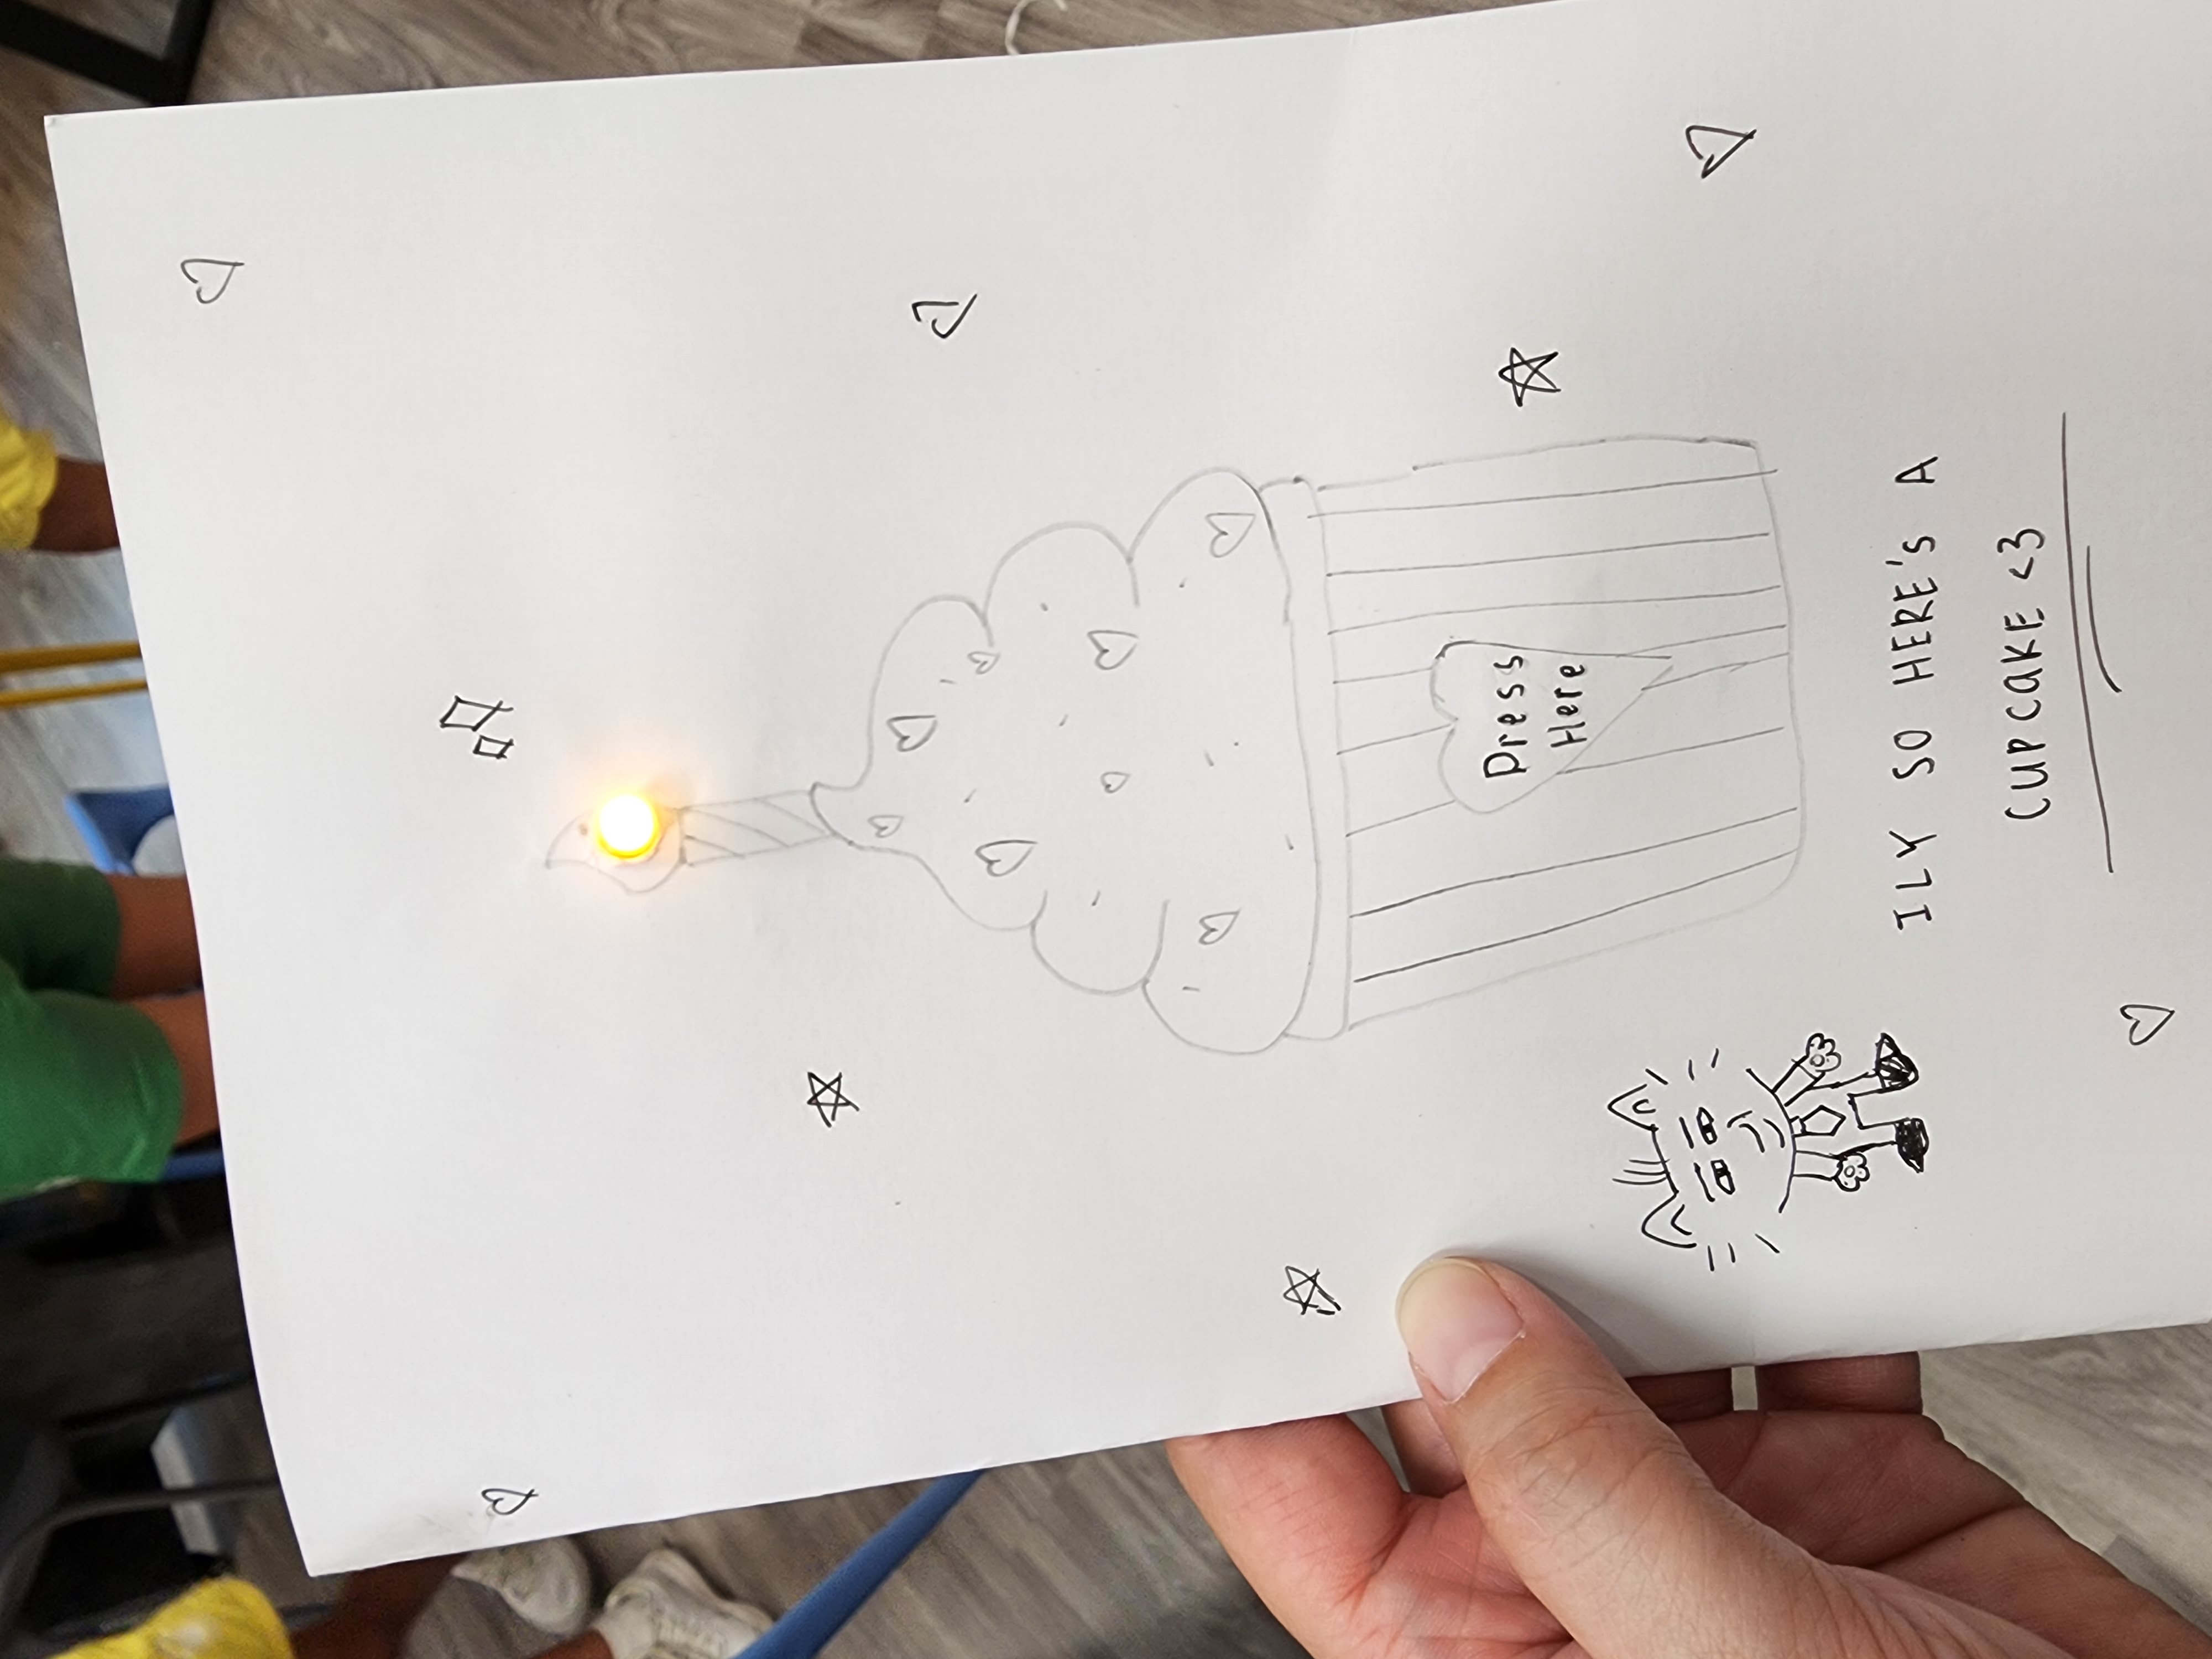 Press
Here
ILY SO HERE'S A
CUPCAKE <3